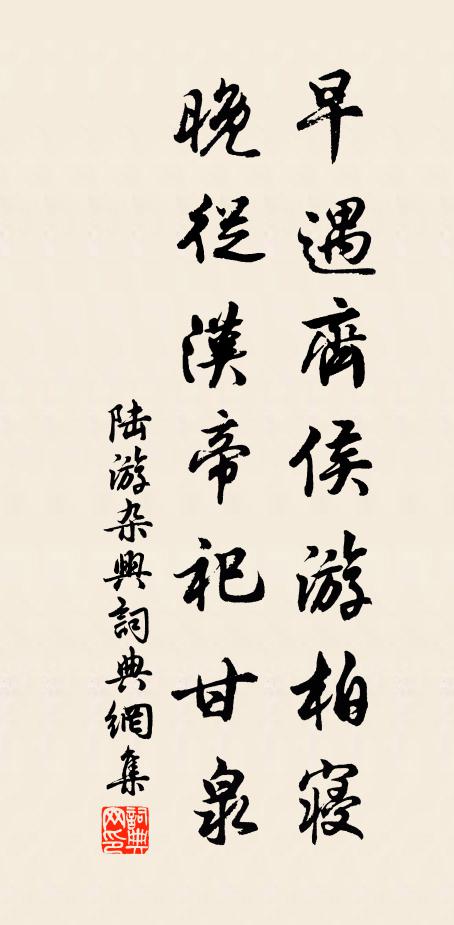 早遇齊侯游柏寝
晚從漢帝祀甘泉
陆游杂興詞典網集
詞典网印